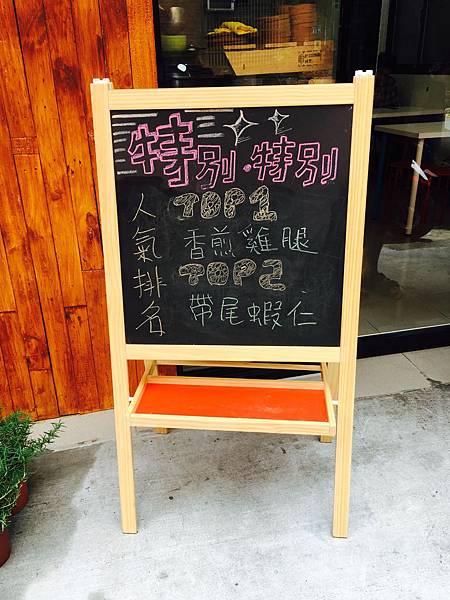 特別.特別
人氣排名
TOP1
香煎雞腿
TOP2
帶尾蝦仁